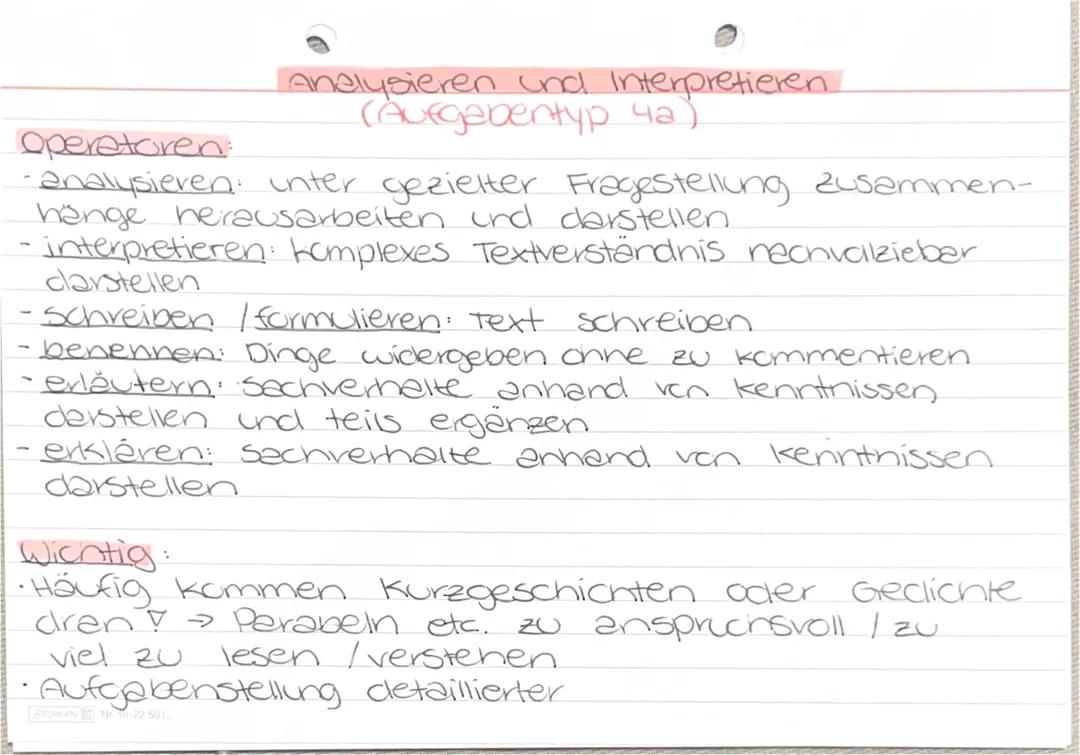 Analysieren und Interpretieren
(Aufgabentyp 4a)
Operatoren:
- analysieren: unter gezielter Fragestellung Zusammen-
hänge herausarbeiten und darstellen
- interpretieren: komplexes Textverständnis nachvolzieber
darstellen
- schreiben / formulieren: Text schreiben
- benennen: Dinge widergeben ohne zu kommentieren
- erläutern: Sachverhalte anhand von Kenntnissen
darstellen und teils ergänzen
- erklären: Sachverhalte anhand von Kenntnissen
darstellen
Wichtig:
· Häufig kommen Kurzgeschichten oder Gedichte
dran ∇ → Parabeln etc. zu anspruchsvoll / zu
viel zu lesen / verstehen
· Aufgabenstellung detaillierter
Nr. 10-22 501..